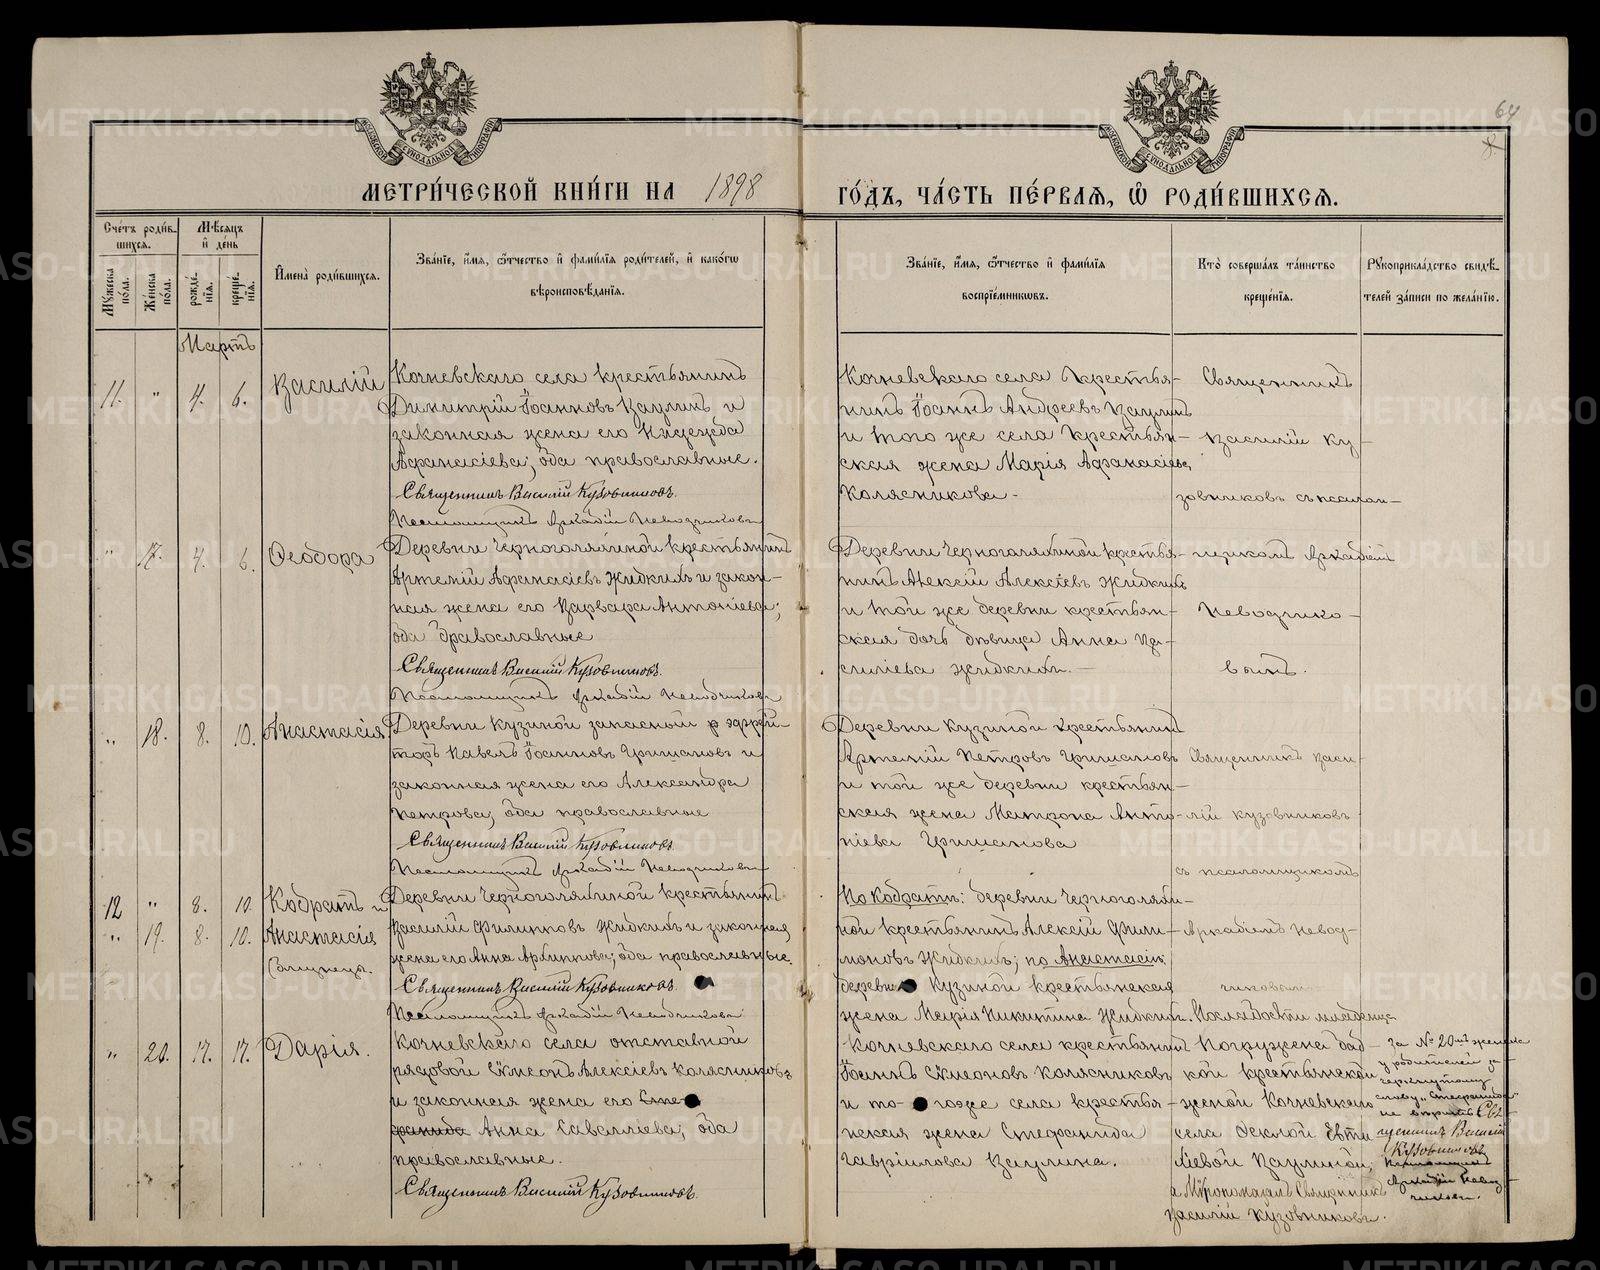 МЕТРИ́ЧЕСКОЙ КНИ́ГИ НА 1898
ГО́ДЪ, ЧА́СТЬ ПЕ́РВАЯ, Ѡ҆ РОДИ́ВШИХСЯ.
64
Сче́тъ роди́в-
шихся.
Му́жеска по́ла.
Же́нска по́ла.
Мѣ́сяцъ
и҆ де́нь
рожде́нїя.
креще́нїя.
И҆мена̀ роди́вшихся.
Зва́нїе, и҆́мя, ѻ҆́тчество и҆ фами́лїя роди́телей, и҆ како́гѡ
вѣроисповѣ́данїя.
Зва́нїе, и҆́мя, ѻ҆́тчество и҆ фами́лїя
воспрїе́мникѡвъ.
Кто̀ соверша́лъ та́инство
креще́нїя.
Рꙋкоприкла́дство свидѣ́-
телей за́писи по жела́нїю.
Мартъ
11. " 4. 6. Василій
Кочневскаго села крестьянинъ
Димитрій Іоанновъ Ваулинъ и
законная жена его Надежда
Афанасіева; оба православные.
Священникъ Василій Кузовниковъ.
Псаломщикъ Аркадій Неводчиковъ
Кочневскаго села крестья-
нинъ Іоаннъ Андреевъ Ваулинъ
и того же села крестьян-
ская жена Марія Афанасіева
Колясникова.
Священникъ
Василій Ку-
зовниковъ съ псалом-
щикомъ Аркадіемъ
Неводчико-
вымъ.
" 17. 4. 6. Ѳеодора
Деревни Черноголяткиной крестьянинъ
Артемій Афанасіевъ Жидкихъ и закон-
ная жена его Варвара Антоніева;
оба православные
Священникъ Василій Кузовниковъ.
Псаломщикъ Аркадій Неводчиковъ
Деревни Черноголяткиной крестья-
нинъ Алексій Алексіевъ Жидкихъ
и той же деревни крестьян-
ская дочь дѣвица Анна Ва-
силіева Жидкихъ.
" 18. 8. 10. Анастасія
Деревни Кузиной запасной ефрей-
торъ Павелъ Іоанновъ Гришановъ и
законная жена его Александра
Петрова; оба православные
Священникъ Василій Кузовниковъ
Псаломщикъ Аркадій Неводчиковъ
Деревни Кузиной крестьянинъ
Артемій Петровъ Гришановъ
и той же деревни крестьян-
ская жена Матрона Анто-
ніева Гришанова
Священникъ Васи-
лій Кузовниковъ
съ псаломщикомъ
Аркадіемъ Невод-
чиковымъ
12 " 8. 10. Кодратъ и
" 19. 8. 10. Анастасія
близнецы.
Деревни Черноголяткиной крестьянинъ
Василій Филипповъ Жидкихъ и законная
жена его Анна Архиппова; оба православные.
Священникъ Василій Кузовниковъ.
Псаломщикъ Аркадій Неводчиковъ
По Кодратѣ: деревни Черноголятки-
ной крестьянинъ Алексій Фили-
моновъ Жидкихъ; по Анастасіи
деревни Кузиной крестьянская
жена Марія Никитина Жидкихъ.
" 20. 17. 17. Дарія.
Кочневскаго села отставной
рядовой Симеонъ Алексіевъ Колясниковъ
и законная жена его Сте-
фанида Анна Савелліева; оба
православные.
Священникъ Василій Кузовниковъ.
Кочневскаго села крестьянинъ
Іоаннъ Симеоновъ Колясниковъ
и то- гоже села крестья-
нская жена Стефанида
Гавріилова Ваулина.
По слабости младенца
погружена баб-
кой крестьянской
женой Кочневскаго
села Ѳеклой Евти-
хіевой Ваулиной,
а Мѵропомазалъ Священникъ
Василій Кузовниковъ.
За № 20мъ женска
у родителей за-
черкнутому
слову "Стефанида"
не вѣрить Свя-
щенникъ Василій
Кузовниковъ
Псаломщикъ
Аркадій Невод-
чиковъ.
METRIKI.GASO-URAL.RU